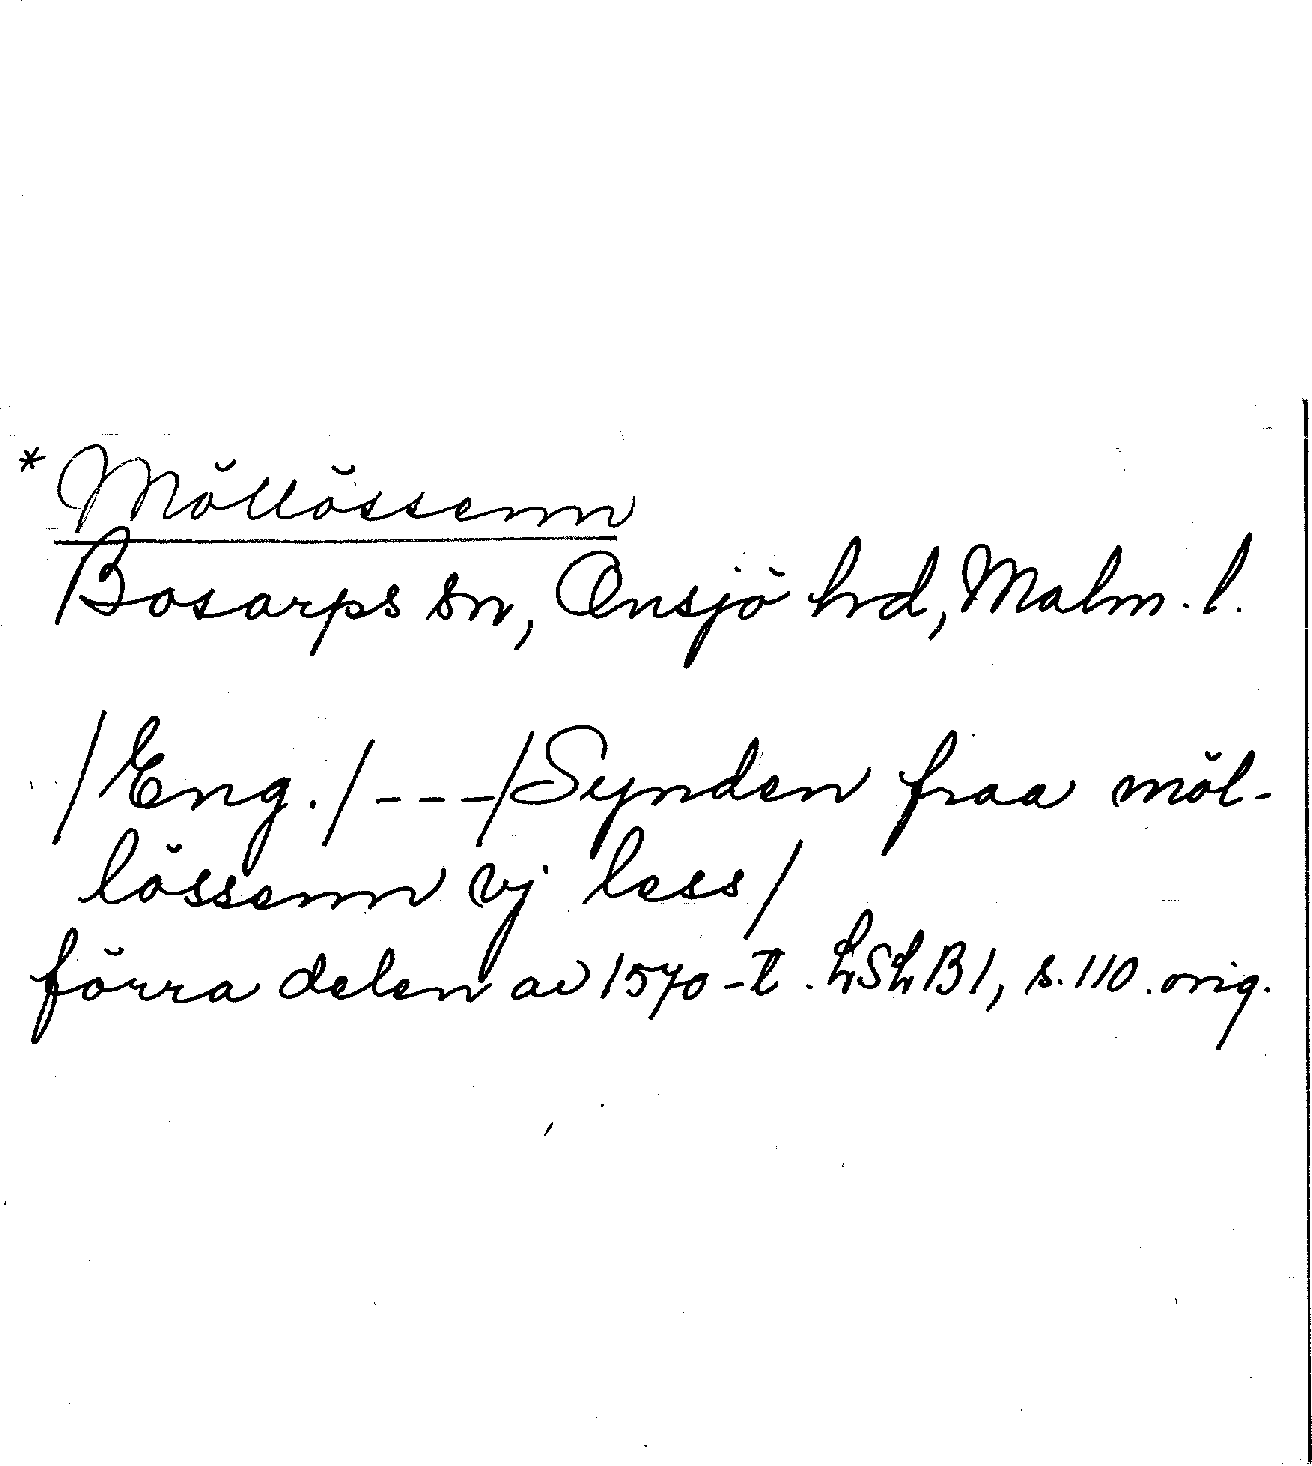 *Möllössenn
Bosarps sn, Onsjö hrd, Malm. l.
/Eng./---/Synden fraa möl-
lössenn vj less/
förra delen av 1570-t. LSLB1, s. 110. orig.